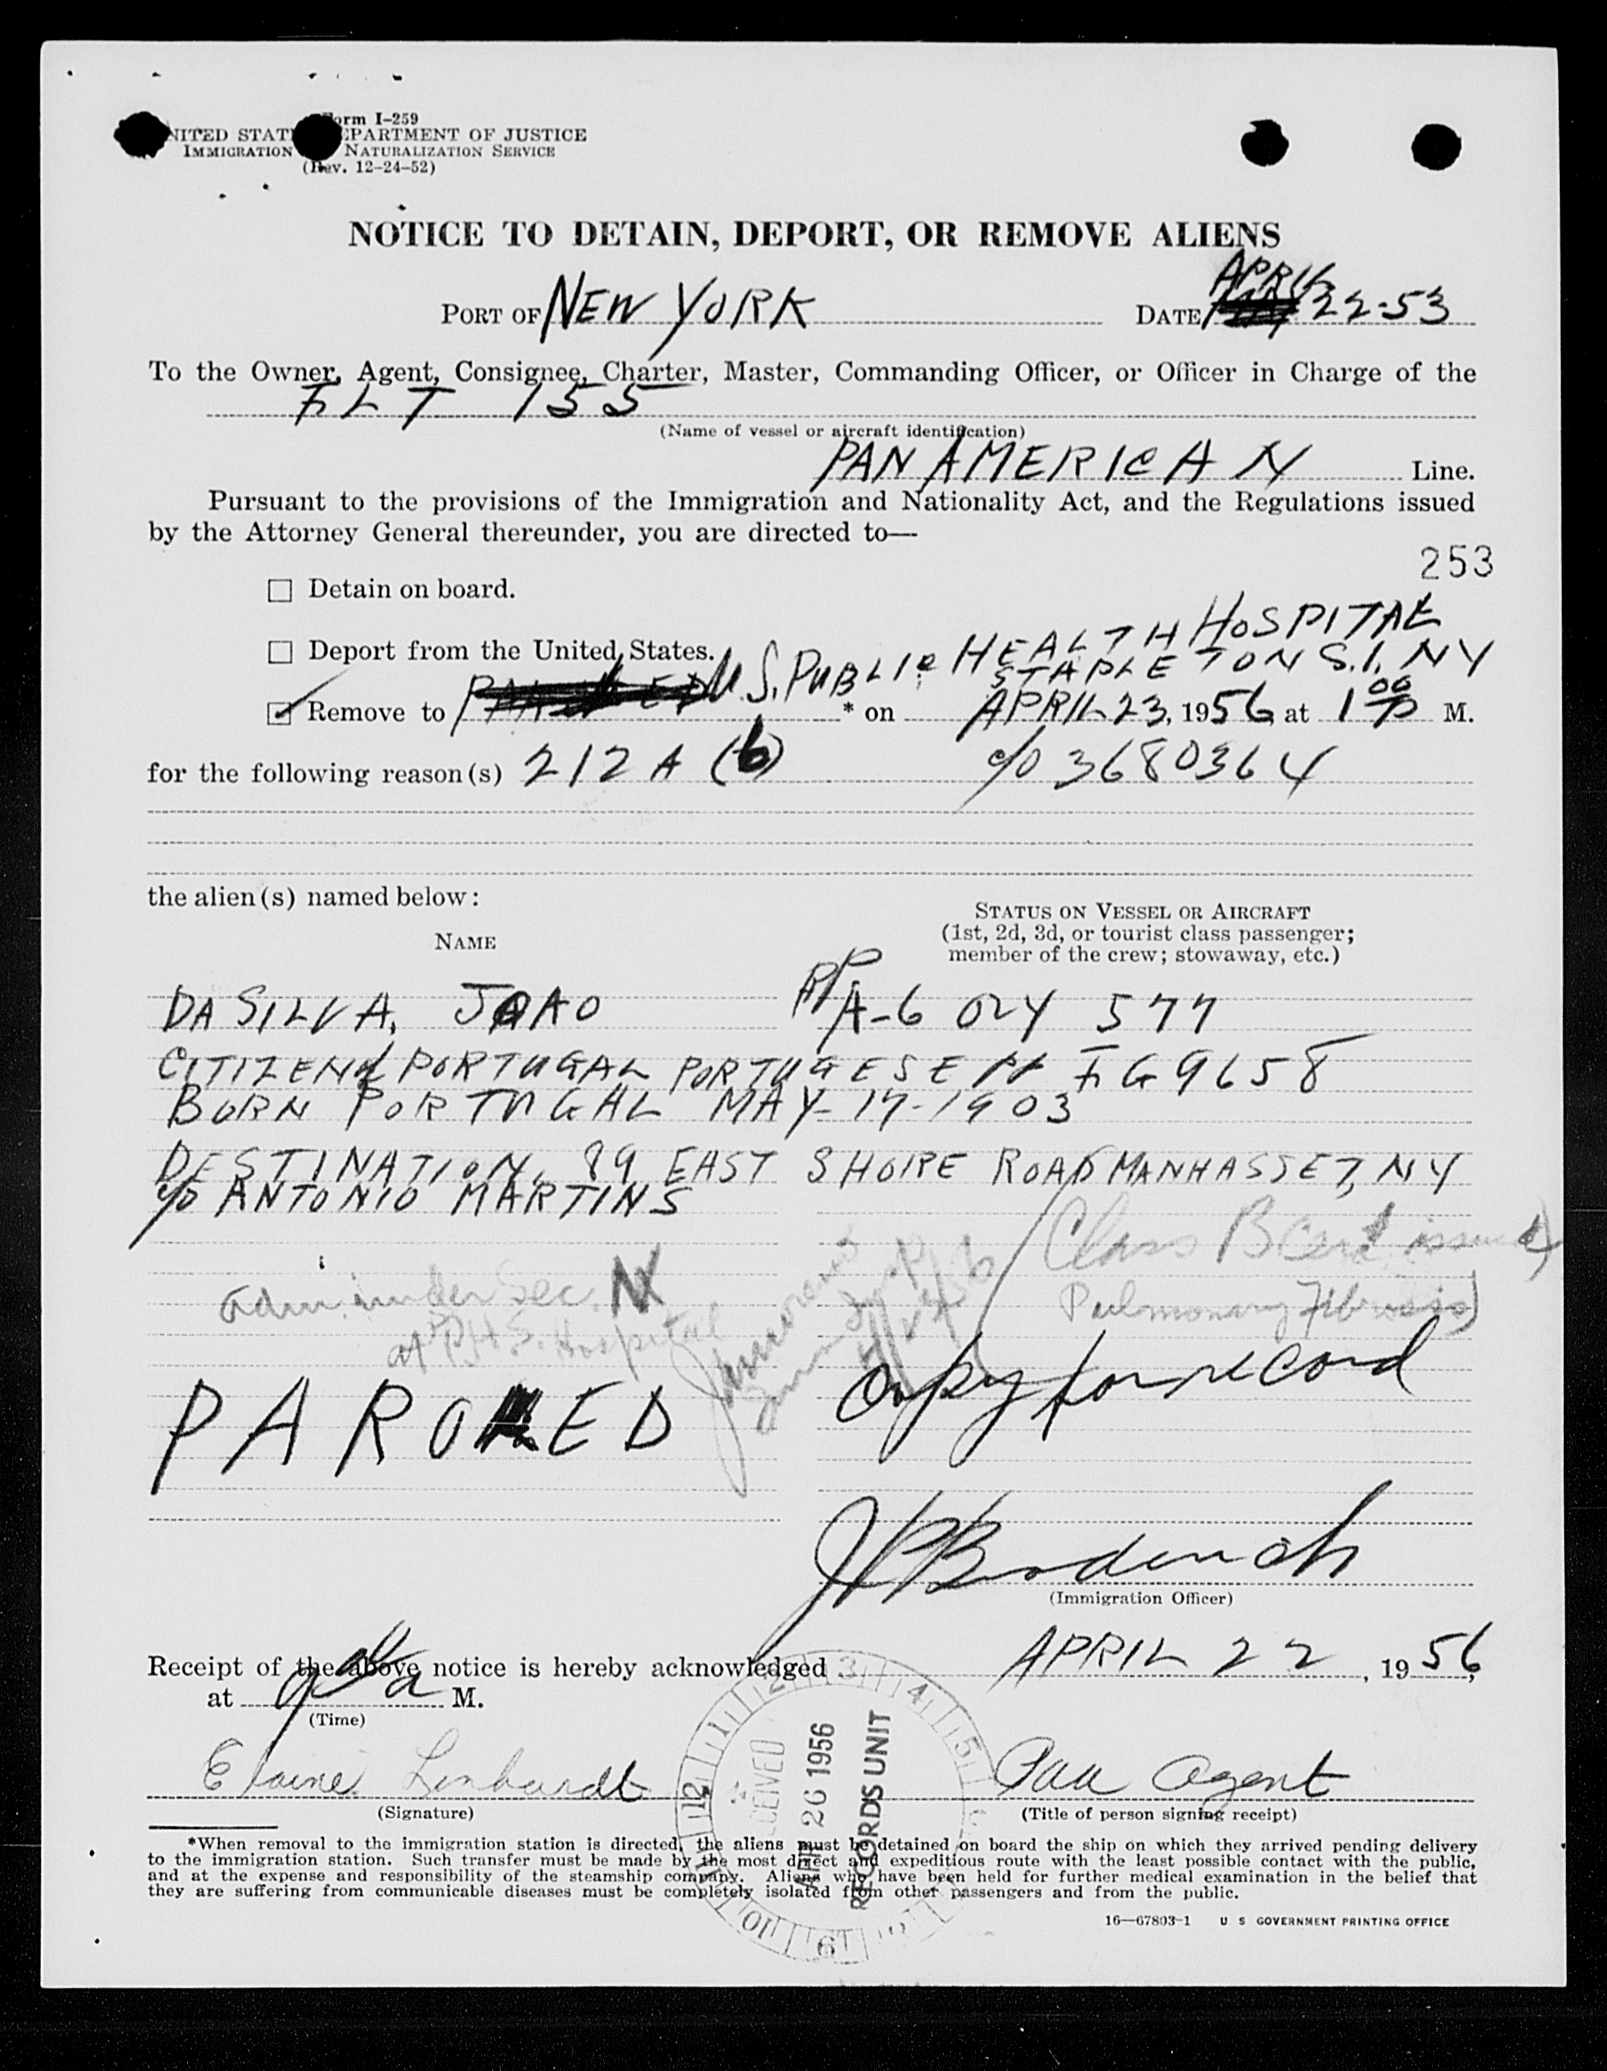 Form I-259
UNITED STATES DEPARTMENT OF JUSTICE
IMMIGRATION NATURALIZATION SERVICE
(Rev. 12-24-52)
NOTICE TO DETAIN, DEPORT, OR REMOVE ALIENS
PORT OF NEW YORK DATE APRIL 22-53
To the Owner, Agent, Consignee, Charter, Master, Commanding Officer, or Officer in Charge of the
FLT 155
(Name of vessel or aircraft identification)
PAN AMERICAN Line.
Pursuant to the provisions of the Immigration and Nationality Act, and the Regulations issued
by the Attorney General thereunder, you are directed to—
253
☐ Detain on board.
☐ Deport from the United States.
U.S. PUBLIC HEALTH HOSPITAL
STAPLETON S.I. NY
☑ Remove to * on APRIL 23, 1956, at 1 00 P M.
for the following reason(s) 212 A (6) c/o 3680364
the alien(s) named below:
NAME
STATUS ON VESSEL OR AIRCRAFT
(1st, 2d, 3d, or tourist class passenger;
member of the crew; stowaway, etc.)
DA SILVA, JOAO A-6 024 577
CITIZEN of PORTUGAL PORTUGESE FG9658
BORN PORTUGAL MAY-17-1903
DESTINATION, 89 EAST SHORE ROAD MANHASSET, NY
c/o ANTONIO MARTINS
Class B Cert issued
Pulmonary Fibrosis)
adm. under Sec.
at P.H.S. Hospital
PAROLED
Copy for record
(Immigration Officer)
Receipt of the above notice is hereby acknowledged APRIL 22, 1956,
at M.
(Time)
Elaine Lenhardt Paa agent
(Signature) (Title of person signing receipt)
RECEIVED
APR 26 1956
RECORDS UNIT
*When removal to the immigration station is directed, the aliens must be detained on board the ship on which they arrived pending delivery
to the immigration station. Such transfer must be made by the most direct and expeditious route with the least possible contact with the public,
and at the expense and responsibility of the steamship company. Aliens who have been held for further medical examination in the belief that
they are suffering from communicable diseases must be completely isolated from other passengers and from the public.
16—67803-1 U S GOVERNMENT PRINTING OFFICE